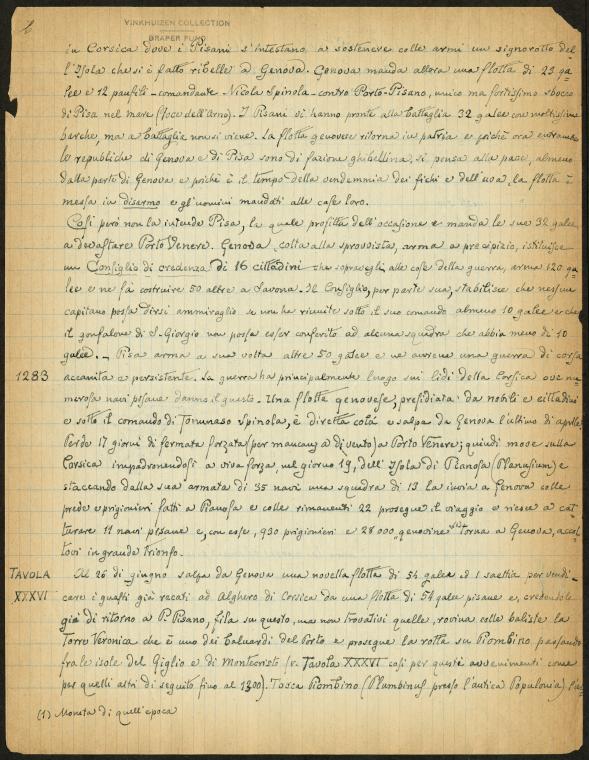 6
VINKHUIZEN COLLECTION
DRAPER FUND
in Corsica dove i Pisani s'intestano a sostenere colle armi un signorotto del
l'Isola che si è fatto ribelle a Genova. Genova manda allora una flotta di 23 ga
lee e 12 panfili - comandante Nicola Spinola - contro Porto-Pisano, unico ma fortissimo sbocco
di Pisa nel mare (foce dell'Arno). I Pisani vi hanno pronte alla battaglia 32 galee con moltissime
barche, ma a battaglia non si viene. La flotta genovese ritorna in patria e poichè ora entrambe
le repubbliche di Genova e di Pisa sono di fazione ghibellina, si pensa alla pace, almeno
dalla parte di Genova e poichè è il tempo della vendemmia dei fichi e dell'uva, la flotta è
messa in disarmo e gl'uomini mandati alle case loro.
Così però non la intende Pisa, la quale profitta dell'occasione e manda le sue 32 galee
a devastare Porto Venere. Genova, colta alla sprovvista, arma a precipizio, istituisce
un Consiglio di credenza di 16 cittadini che sopravegli alle cose della guerra, arma 120 ga
lee e ne fa costruire 50 altre a Savona. Il Consiglio, per parte sua, stabilisce che nessun
capitano possa dirsi ammiraglio se non ha riunite sotto il suo comando almeno 10 galee e che
il gonfalone di S. Giorgio non possa esser conferito ad alcuna squadra che abbia meno di 10
galee. - Pisa arma a sua volta altre 50 galee e ne avviene una guerra di corsa
1283 accanita e persistente. La guerra ha principalmente luogo sui lidi della Corsica ove nu
merose navi pisane danno il guasto. Una flotta genovese, presidiata da nobili e cittadini
e sotto il comando di Tommaso Spinola, è diretta colà e salpa da Genova l'ultimo di aprile.
Perde 17 giorni di fermata forzata (per mancanza di vento) a Porto Venere; quindi move sulla
Corsica impadronendosi a viva forza, nel giorno 19, dell'Isola di Pianosa (Planusium) e
staccando dalla sua armata di 35 navi una squadra di 13 la invia a Genova colle
prede e prigionieri fatti a Pianosa e colle rimanenti 22 prosegue il viaggio e riesce a cat
turare 11 navi pisane e, con esse, 930 prigionieri e 28000 genovine (1). Torna a Genova, accol
tovi in grande trionfo.
TAVOLA XXXVI
Al 26 di giugno salpa da Genova una novella flotta di 54 galee ed 1 saettia per vendi
care i guasti già recati ad Alghero di Corsica da una flotta di 54 galee pisane e, credendole
già di ritorno a P. Pisano, fila su questo, ma non trovativi quelle, rovina colle baliste la
Torre Veronica che è uno dei baluardi del Porto e prosegue la rotta su Piombino passando
fra le isole del Giglio e di Montecristo (v. Tavola XXXVI così per questi avvenimenti come
per quelli altri di seguito fino al 1300). Tocca Piombino (Plumbinus presso l'antica Populonia)
(1) Moneta di quell'epoca